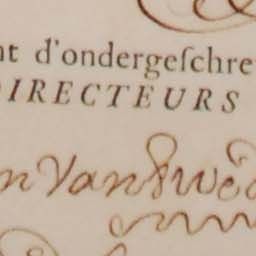 nt d'ondergeſchre
DIRECTEURS
n Van Swed